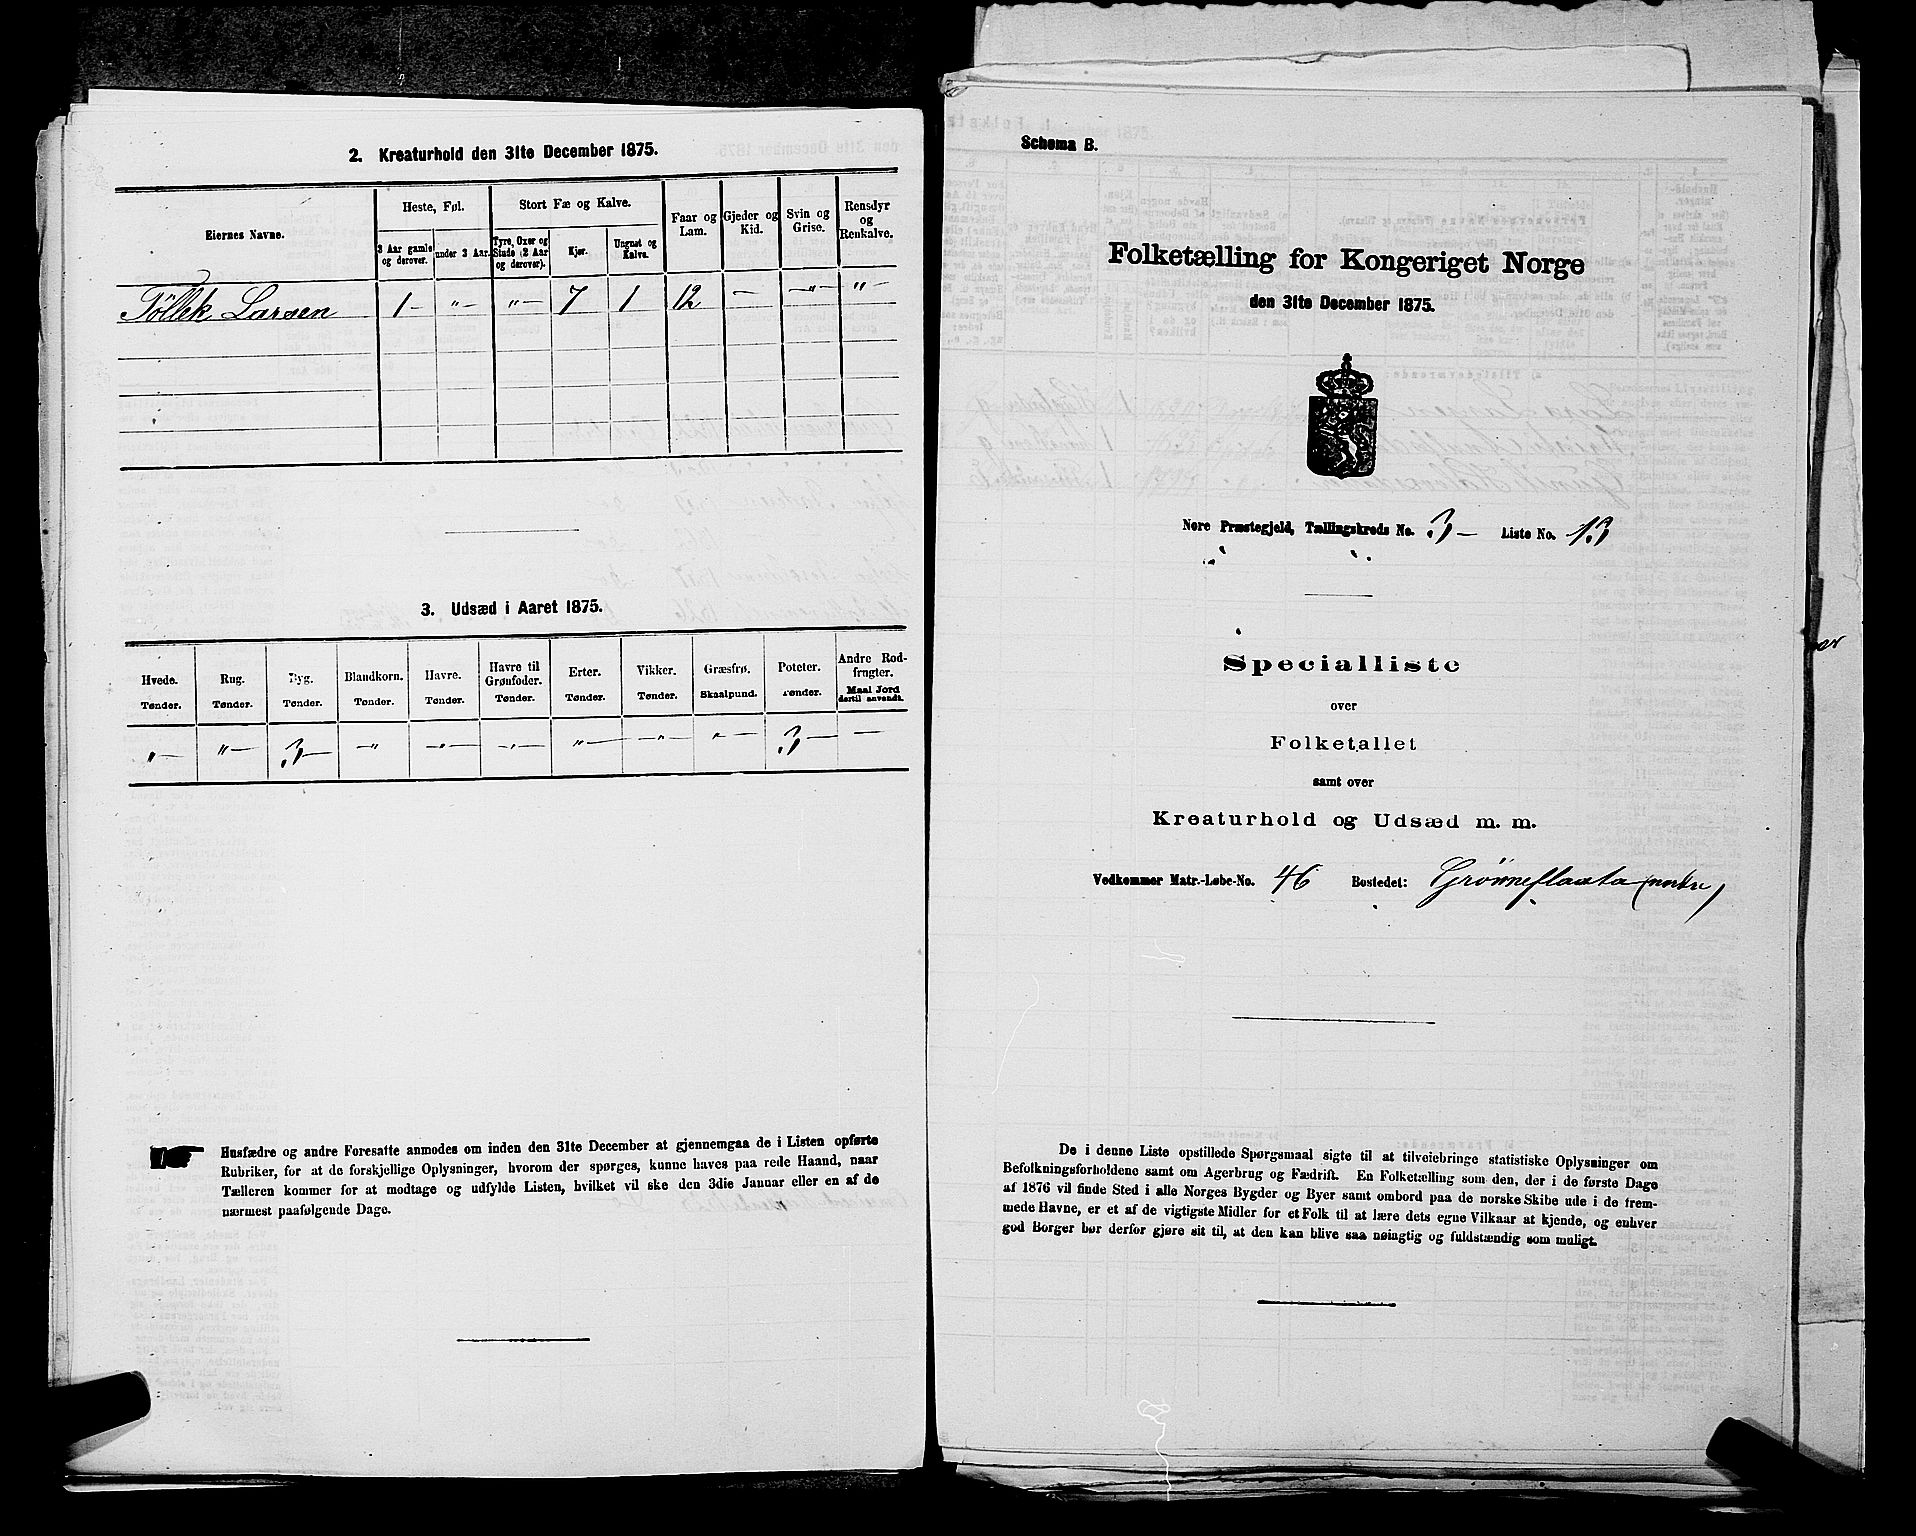 2. Kreaturhold den 31te December 1875.
Eiernes Navne.
Heste, Føl.
Stort Fæ og Kalve.
Faar og Lam.
Gjeder og Kid.
Svin og Grise.
Rensdyr og Renkalve.
3 Aar gamle og derover.
under 3 Aar.
Tyre, Oxer og Stude (2 Aar og derover).
Kjør.
Ungnøt og Kalve.
Töllek Larsen 1 — " — " — 7 1 12 — — " — " —
3. Udsæd i Aaret 1875.
Hvede. Rug. Byg. Blandkorn. Havre. Havre til Grønfoder. Erter. Vikker. Græsfrø. Poteter. Andre Rodfrugter.
Tønder. Tønder. Tønder. Tønder. Tønder. Tønder. Tønder. Tønder. Skaalpund. Tønder. Maal Jord dertil anvendt.
" — " — 3 — " — " — " — " — " — " — 3 — —
Husfædre og andre Foresatte anmodes om inden den 31te December at gjennemgaa de i Listen opførte
Rubriker, for at de forskjellige Oplysninger, hvorom der spørges, kunne haves paa rede Haand, naar
Tælleren kommer for at modtage og udfylde Listen, hvilket vil ske den 3die Januar eller en af de
nærmest paafølgende Dage.
Schema B.
Folketælling for Kongeriget Norge
den 31te December 1875.
Nore Præstegjeld, Tællingskreds No. 3 — Liste No. 13
Specialliste
over
Folketallet
samt over
Kreaturhold og Udsæd m. m.
Vedkommer Matr.-Løbe-No. 46 Bostedet: Grönneflaata (nordre)
De i denne Liste opstillede Spørgsmaal sigte til at tilveiebringe statistiske Oplysninger om
Befolkningsforholdene samt om Agerbrug og Fædrift. En Folketælling som den, der i de første Dage
af 1876 vil finde Sted i alle Norges Bygder og Byer samt ombord paa de norske Skibe ude i de frem-
mede Havne, er et af de vigtigste Midler for et Folk til at lære dets egne Vilkaar at kjende, og enhver
god Borger bør derfor gjøre sit til, at den kan blive saa nøiagtig og fuldstændig som muligt.